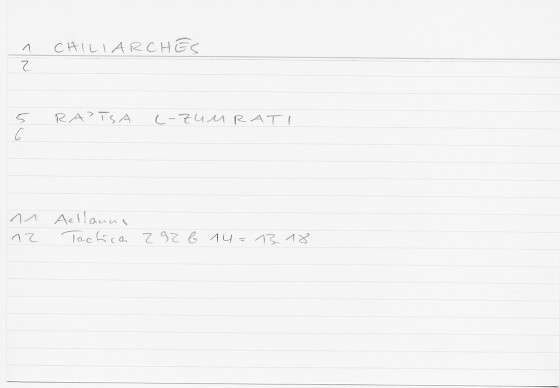 1 CHILIARCHĒS
2
5 RAʾĪSA L-ZUMRATI
6
11 Aelianus
12 Tactica 292 B 14 = 13.18